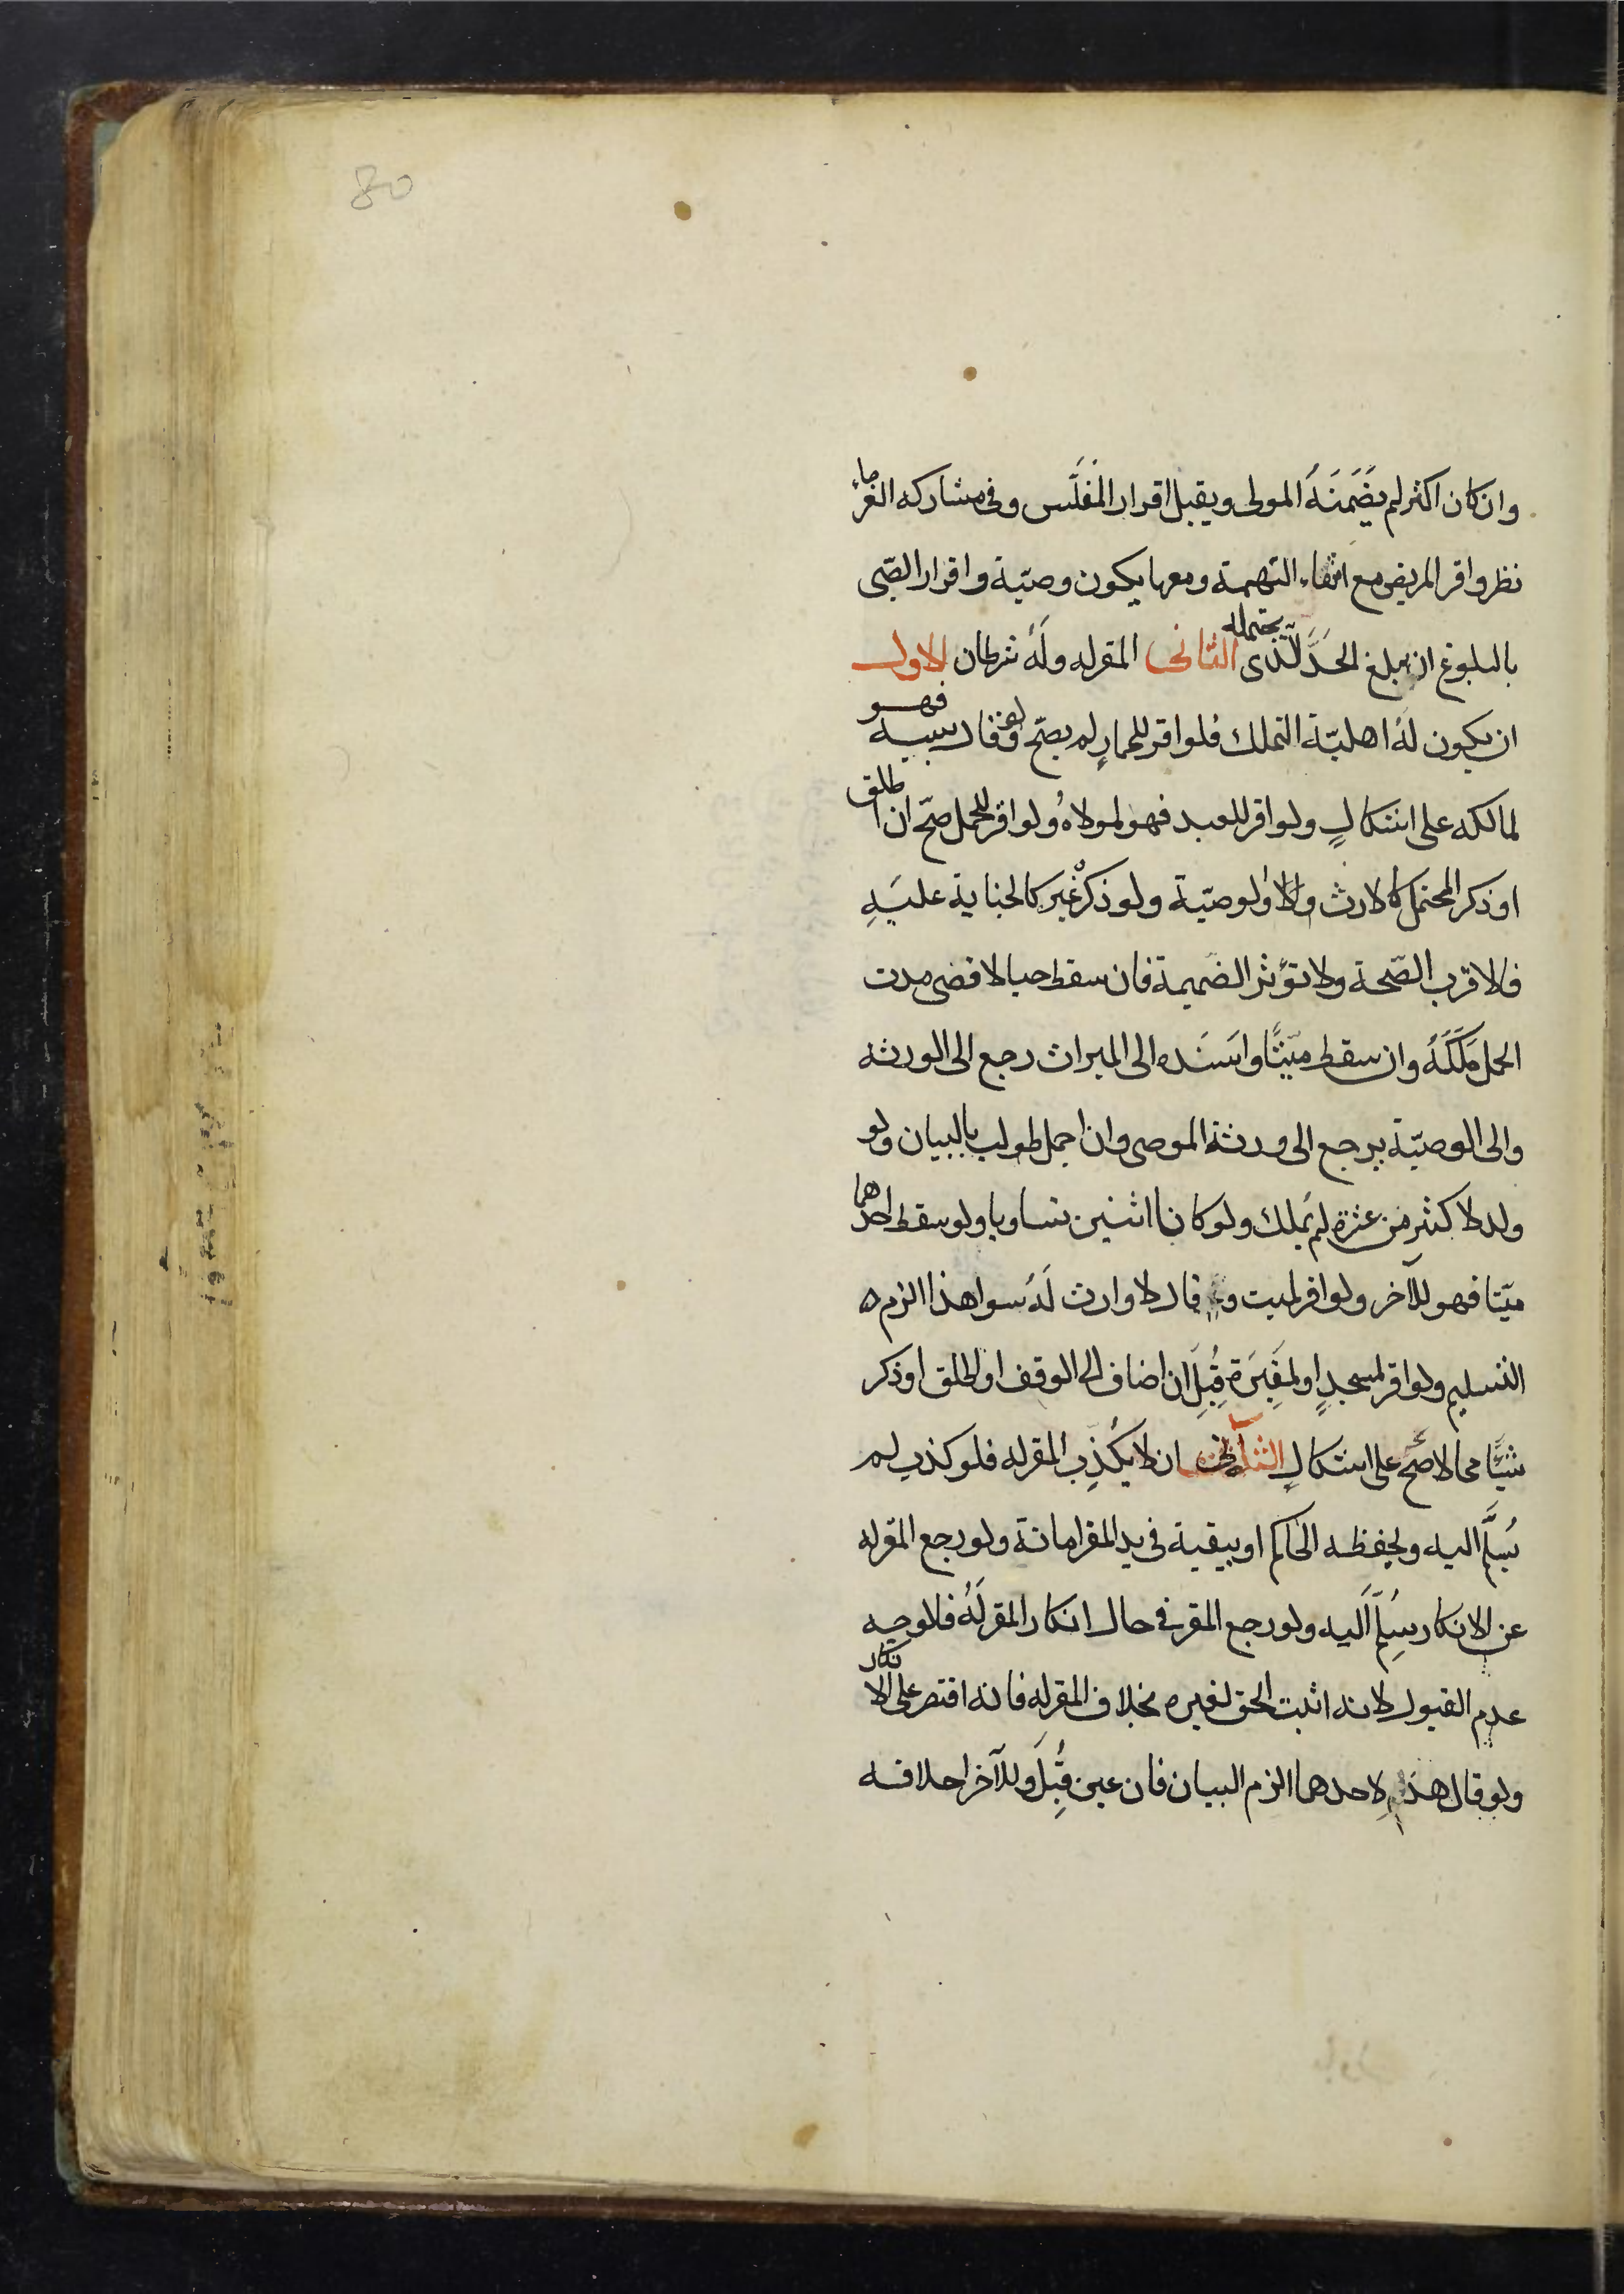 80
وان كان اكثر لم يضَمَنَهُ المولى ويقبل اقرار المفَلَّس وفى مشاركه الغرماء
نظر واقر المريض مع انتفاء التهمة ومعها يكون وصيّة واقرار الصّبى
بالبلوغ ان بلغ الحَدَّ الّذى يحتمله الثانى المقرله ولَهُ شرطان الاول
ان يكون لَهُ اهليّة التملك فلو اقر للحمارِ لم يصَح ولو قال بسببه فهو
لمالكه على اشكالٍ ولو اقر للعبد فهو لمولاهُ ولو اقر للحمل صَحّ ان اطلق
او ذكر المحتمل كالارث والوصيّة ولو ذكر غيره كالجناية عليَهِ
فالاقرب الصّحة ولا تؤثر الضميمة فان سقط حيا لاقصى مدت
الحمل مَلَكَهُ وان سقط ميّتًا واسَنَده الى الميراث رجع الى الورثه
والى الوصيّة يرجع الى ورثة الموصى وان اجمل طولب بالبيان ولو
ولد لاكثر من عشرة لم يَملك ولو كانا اثنين تساويا ولو سقط احدهما
ميّتا فهو للآخر ولو اقر لميت وقال لا وارث لَهُ سوا هذا الزم ه
التسليم ولو اقر لمسجدٍ او لمقَبَرَة قُبِلَ ان اضاف الى الوقف او اطلق او ذكر
شيًا محالا صَحّ على اشكالٍ الثانى ان لا يُكذِب المقرله فلو كذب لم
يُسَلَّم اليه ويحفظه الحاكم او يبقية فى يد المقر امانة ولو رجع المقرله
عن الانكار سُلِمّ اَليه ولو رجع المقر فى حال انكار المقرلَهُ فلاوجه
عدم القبول لانه اثبت الحق لغيره بخلاف المقرله فانه اقتصر على الانكار
ولو قال هذا لاحدهما الزم البيان فان عين قُبِلَ وللآخر احلافه